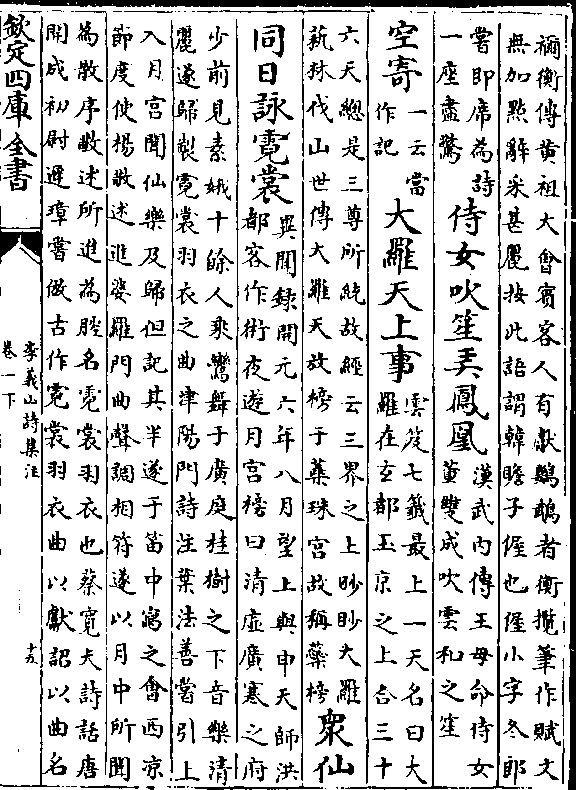 禰衡傳黃祖大會賓客人有獻鸚鵡者衡攬筆作賦文
無加點辭采甚麗按此語謂韓瞻子偓也偓小字冬郎
嘗即席為詩
一座盡驚
侍女吹笙弄鳳凰
漢武內傳王母命侍女
董雙成吹雲和之笙
空寄
一云當
作記
大羅天上事
雲笈七籤最上一天名曰大
羅在玄都玉京之上合三十
六天總是三尊所統故經云三界之上眇眇大羅
萟狖伐山世傳大羅天放榜于蘂珠宮故稱蘂榜
衆仙
同日詠霓裳
異聞録開元六年八月望上與申天師洪
都客作術夜遊月宮榜曰清虛廣寒之府
少前見素娥十餘人乘鸞舞于廣庭桂樹之下音樂清
麗遂歸製霓裳羽衣之曲津陽門詩注葉法善嘗引上
入月宮聞仙樂及歸但記其半遂于笛中寫之會西涼
節度使楊敬述進婆羅門曲聲調相符遂以月中所聞
為散序敬述所進為腔名霓裳羽衣也蔡寬夫詩話唐
開成初尉遲璋嘗倣古作霓裳羽衣曲以獻詔以曲名
欽定四庫全書
李義山詩集注
卷一下
十五